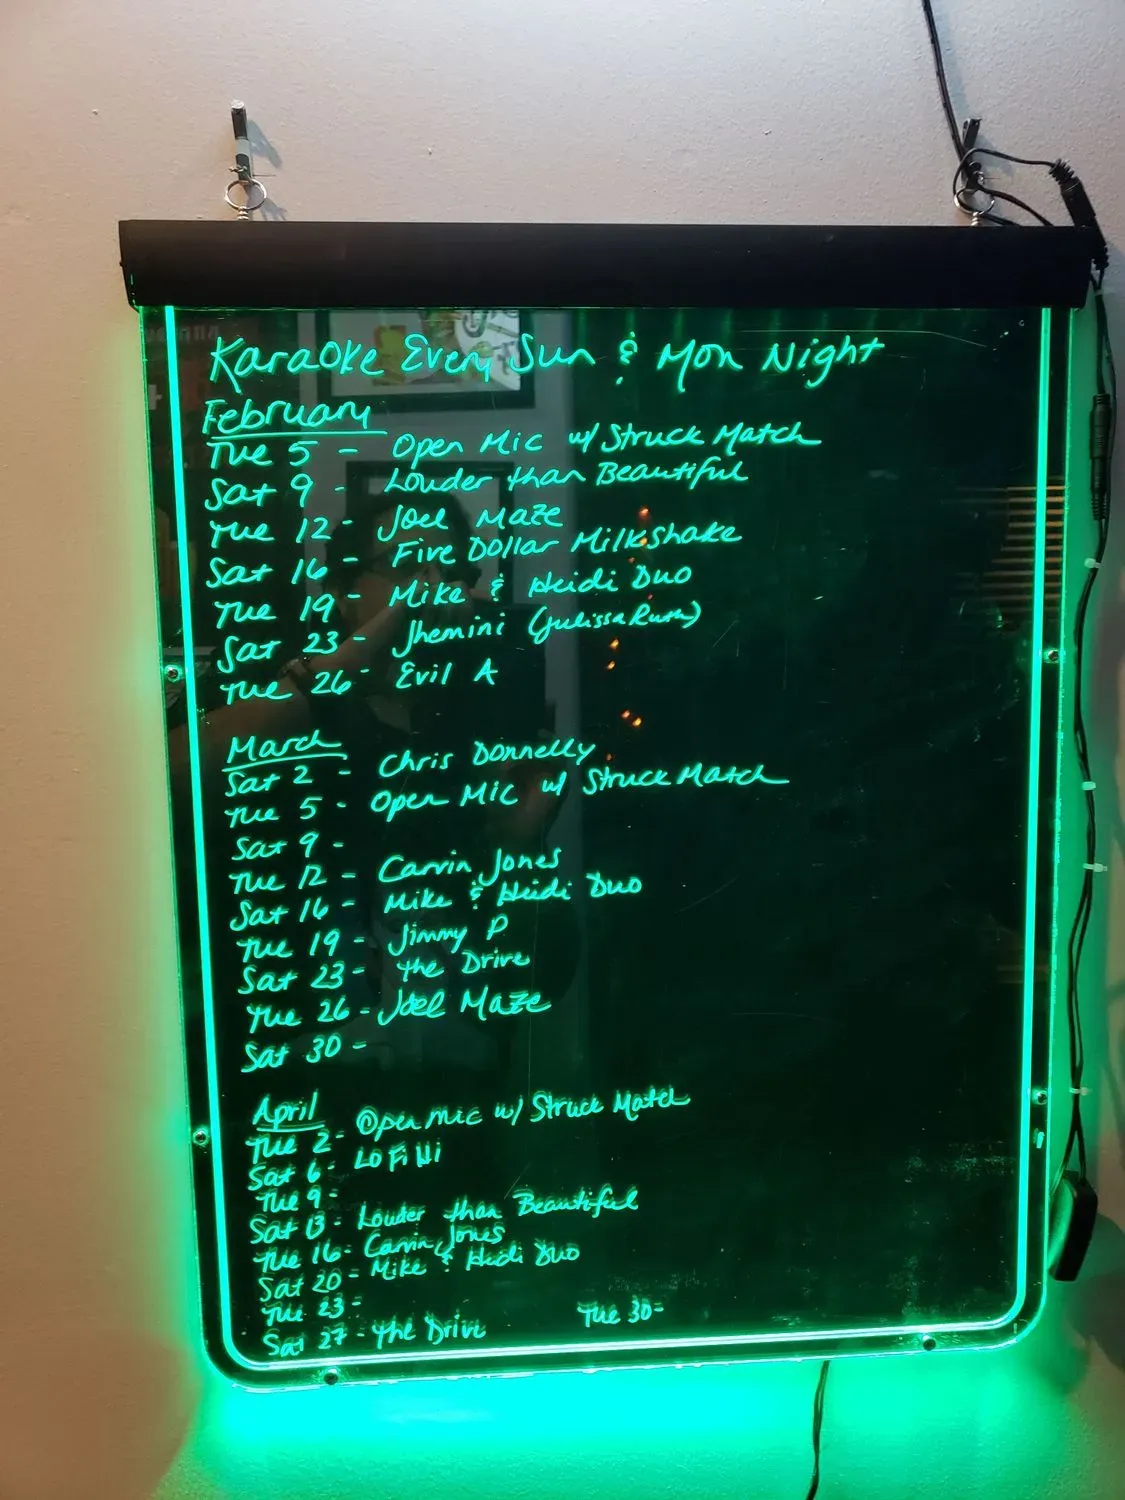 Karaoke Every Sun & Mon Night
February
Tue 5 - Open Mic w/ Struck Match
Sat 9 - Louder than Beautiful
Tue 12 - Joel Maze
Sat 16 - Five Dollar Milkshake
Tue 19 - Mike & Heidi Duo
Sat 23 - Jhemini (Julissa Ruth)
Tue 26 - Evil A
March
Sat 2 - Chris Donnelly
Tue 5 - Open Mic w/ Struck Match
Sat 9 -
Tue 12 - Carvin Jones
Sat 16 - Mike & Heidi Duo
Tue 19 - Jimmy P
Sat 23 - the Drive
Tue 26 - Joel Maze
Sat 30 -
April
Tue 2 - Open Mic w/ Struck Match
Sat 6 - LO Fi Hi
Tue 9 -
Sat 13 - Louder than Beautiful
Tue 16 - Carvin Jones
Sat 20 - Mike & Heidi Duo
Tue 23 -
Sat 27 - the Drive
Tue 30 -